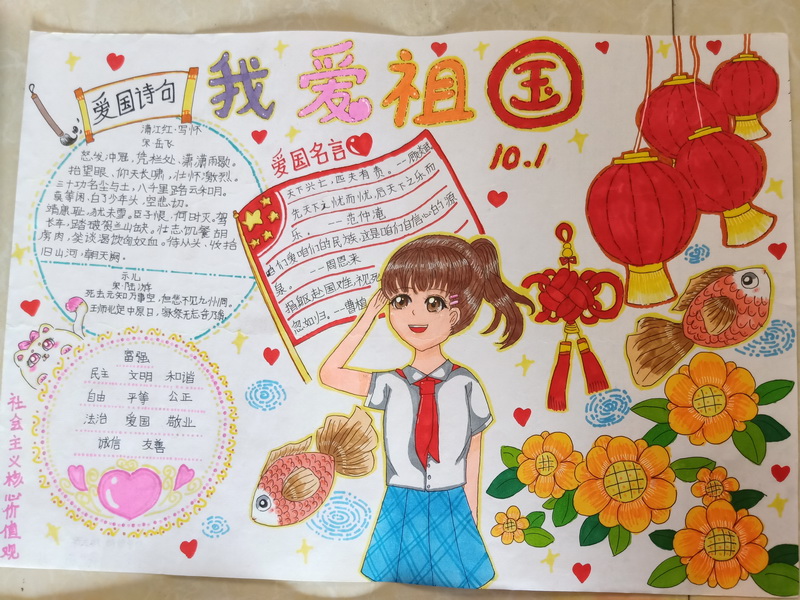 我爱祖国
10.1
爱国诗句
满江红·写怀
宋·岳飞
怒发冲冠,凭栏处、潇潇雨歇。
抬望眼、仰天长啸,壮怀激烈。
三十功名尘与土,八千里路云和月。
莫等闲、白了少年头,空悲切。
靖康耻,犹未雪。臣子恨,何时灭。驾
长车,踏破贺兰山缺。壮志饥餐胡
虏肉,笑谈渴饮匈奴血。待从头、收拾
旧山河,朝天阙。
示儿
宋·陆游
死去元知万事空,但悲不见九州同。
王师北定中原日,家祭无忘告乃翁
爱国名言
天下兴亡,匹夫有责。——顾炎武
先天下之忧而忧,后天下之乐而
乐。——范仲淹
们爱咱们的民族,这是咱们自信心的源
泉。——周恩来
捐躯赴国难,视死
忽如归。——曹植
富强
民主 文明 和谐
自由 平等 公正
法治 爱国 敬业
诚信 友善
社会主义核心价值观